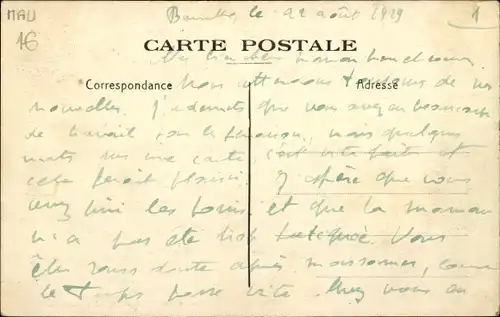 MAU
16
le 22 août 1919
1
CARTE POSTALE
Correspondance
Adresse
Nous attendons toujours de vos
nouvelles. J'admets que vous avez eu beaucoup
de travail pour la, mais quelques
mots sur une carte, c'est vite fait et
cela ferait plaisir. J'espère que vous
avez fini les foins et que la maman
n'a pas été trop fatiguée. Vous
êtes sans doute après moissonner, comme
le temps passe vite. Chez vous on